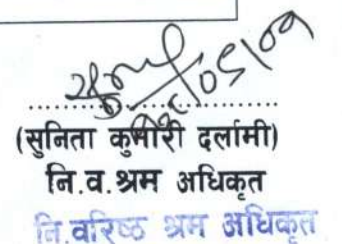 (सुनिता कुमारी दर्लामी)
नि.व.श्रम अधिकृत
नि.वरिष्ठ श्रम अधिकृत